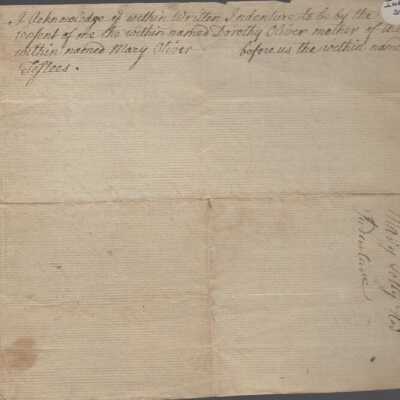 I Acknowledge ye within Written Indenture to be by the
Consent of me the within named Dorothy Oliver mother of the
within named Mary Oliver before us the within name
Justices.
Mary
Indenture